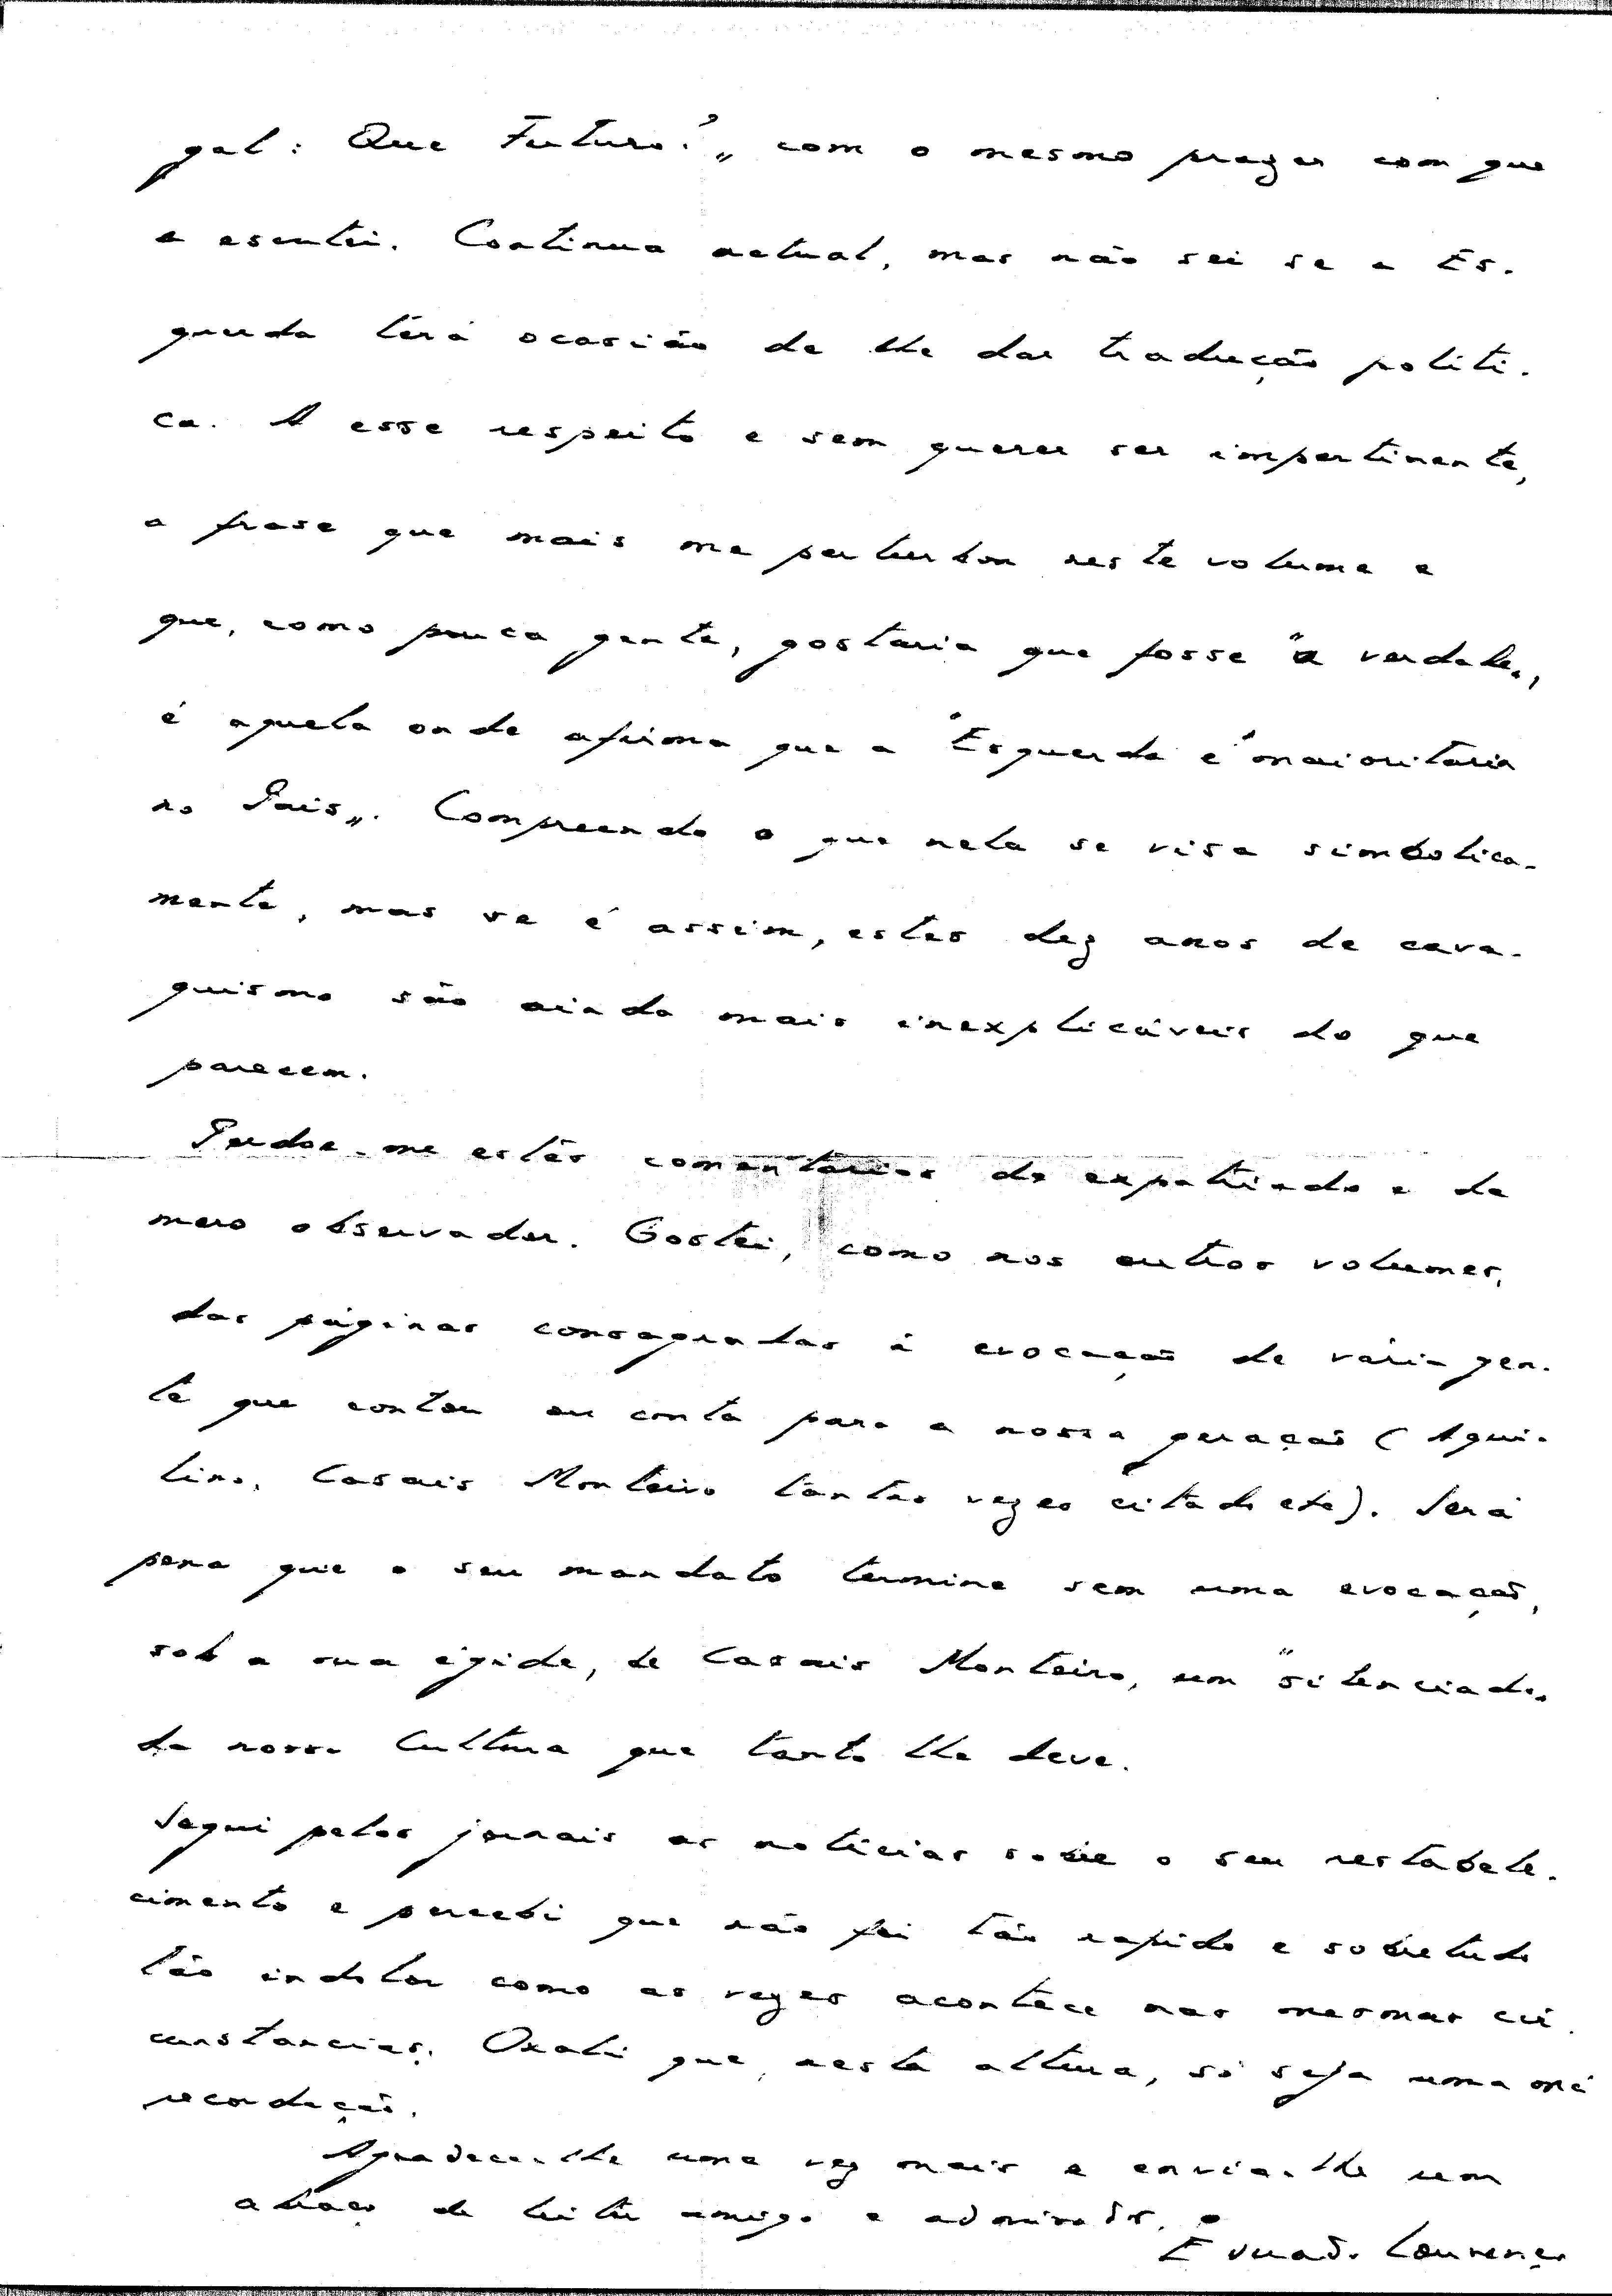 gal: Que Futuro?" com o mesmo prazer com que
a escutei. Continua actual, mas não sei se a Es-
querda terá ocasião de lhe dar tradução politi-
ca. A esse respeito e sem querer ser impertinente,
a frase que mais me perturbou neste volume e
que, como pouca gente, gostaria que fosse "a verdade",
é aquela onde afirma que a "Esquerda é maioritária
no País". Compreendo o que nela se visa simbolica-
mente, mas se é assim, estes dez anos de cava-
quismo são ainda mais inexplicáveis do que
parecem.
Perdoe-me estes comentários de expatriado e de
mero observador. Gostei, como nos outros volumes,
das páginas consagradas à evocação de vária gen-
te que contou ou conta para a nossa geração (Aqui-
lino, Casais Monteiro tantas vezes citado etc). Será
pena que o seu mandato termine sem uma evocação,
sob a sua égide, de Casais Monteiro, um "silenciado"
da nossa Cultura que tanto lhe deve.
Segui pelos jornais as notícias sobre o seu restabele-
cimento e percebi que não foi tão rapido e sobretudo
tão indolor como as vezes acontece nas mesmas cir-
cunstancias. Oxalá que, nesta altura, só seja uma má
recordação.
Agradece-lhe uma vez mais e envia-lhe um
abraço de leitor amigo e admirador, o
Eduardo Lourenço